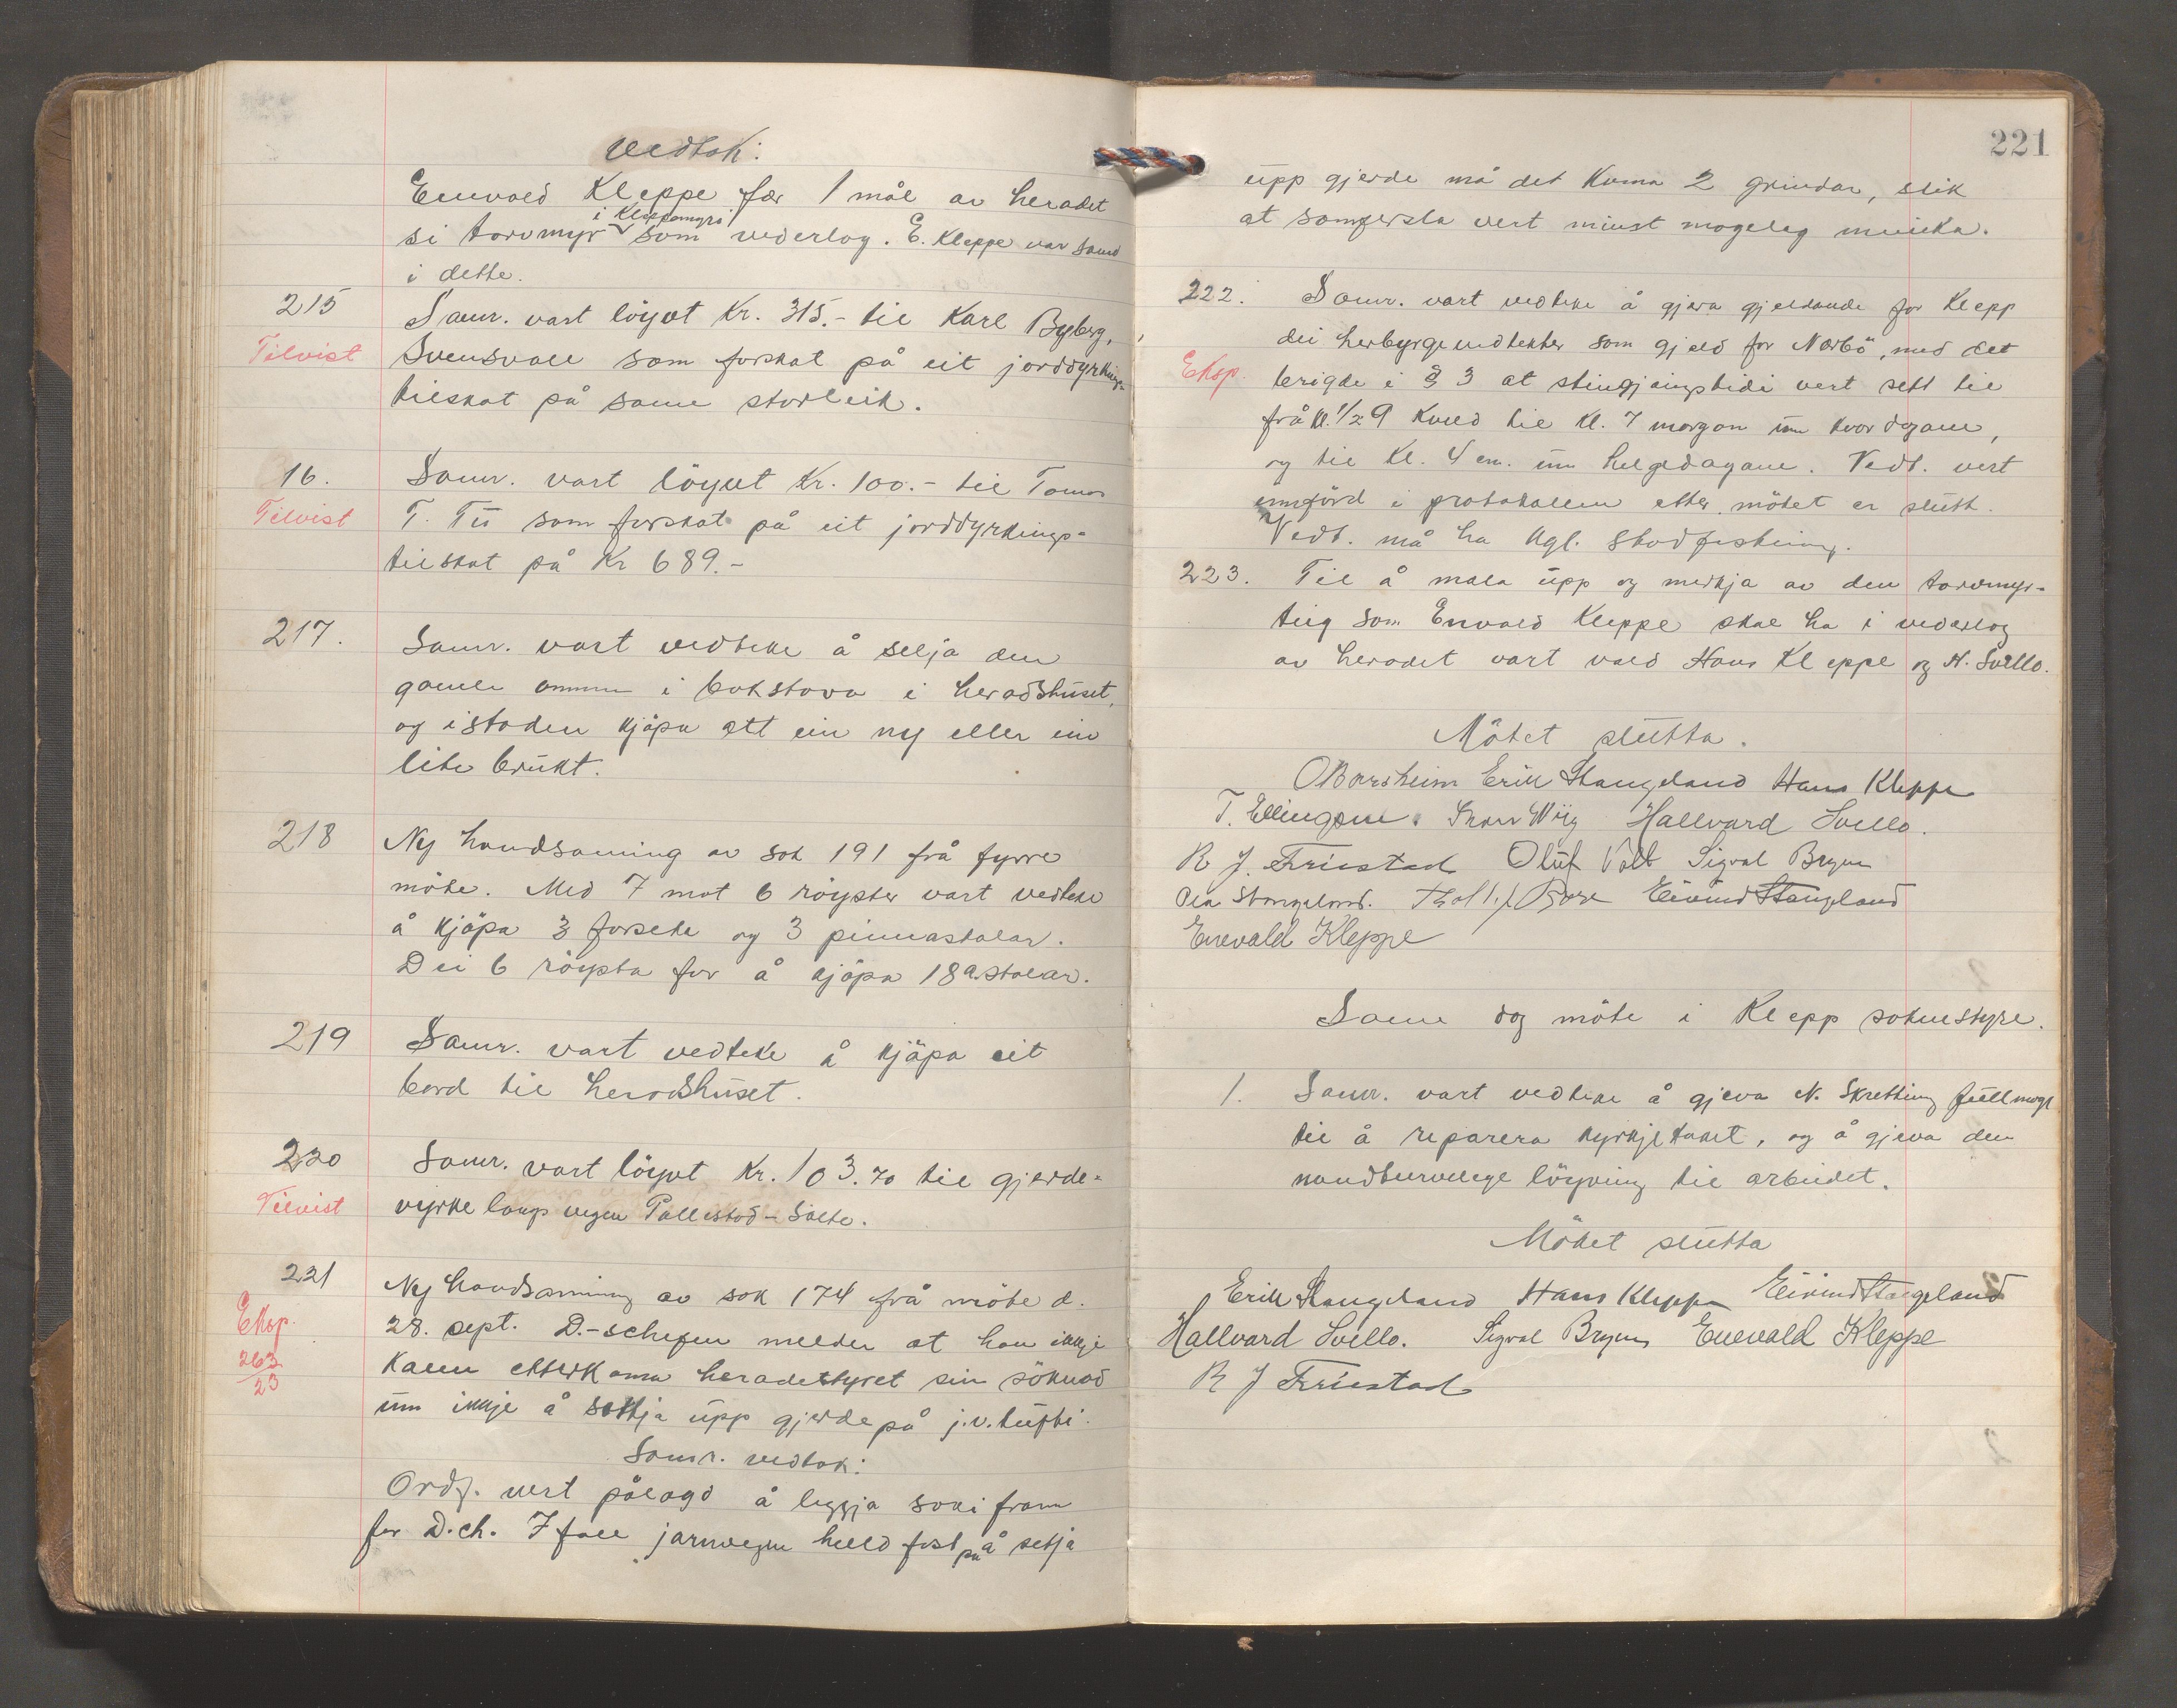 Vedtok:
Enevald Kleppe fær 1 mål av heradet
si torvmyr i Kleppemyrå som vederlog. E. Kleppe var samd
i dette.
215 Samr. vart löyvt Kr. 315.- til Karl Byberg,
Tilvist Svensvoll som forskot på eit jorddyrkings-
tilskot på same storleik.
16. Samr. vart löyvt Kr. 100.- til Tomas
Tilvist T. Tu som forskot på eit jorddyrkings-
tilskot på Kr 689.-
217. Samr. vart vedteke å selja den
gamle omnen i bokstova i heradshuset,
og istaden kjöpa att ein ny eller ein
lite brukt.
218 Ny handsaming av sak 191 frå fyrre
möte. Med 7 mot 6 röyster vart vedteke
å kjöpa 3 forsete og 3 pinnastolar.
Dei 6 röysta for å kjöpa 18 a. stolar.
219 Samr. vart vedteke å kjöpa eit
bord til heradshuset.
220 Samr. vart löyvt Kr. 103.70 til gjerde-
Tilvist vyrke langs vegen Pollestad - Salte.
221 Ny handsaming av sak 174 frå möte d.
Eksp. 28. sept. D.-schefen melder at han ikkje
263/23 kann etterkoma heradstyret sin söknad
um ikkje å setja upp gjerde på j.v. tufti.
Samr. vedtok:
Ordf. vert pålagd å leggja saki fram
for D.ch. I fall jarnvegen held fast på å setja
221
upp gjerde må det koma 2 grindar, slik
at samfersla vert minst mogeleg minka.
222. Samr. vart vedteke å gjera gjeldande for Klepp
dei herbyrgevedtekter som gjeld for Nærbö, med det
Eksp. brigde i § 3 at stengjingstidi vert sett til
frå kl. 1/2 9 kveld til kl. 7 morgon um kvardagane,
og til kl. 4 em. um helgedagane. Vedt. vert
innförd i protokollen etter mötet er slutt.
Vedt. må ha kgl. stadfesting.
223. Til å mæla upp og merkja av den torvmyr-
teig som Enevald Kleppe skal ha i vederlog
av heradet vart vald Hans Kleppe og H. Svello.
Mötet slutta.
O Borsheim Erik Stangeland Hans Kleppe
T. Ellingsen. Wiig Hallvard Svello.
R J. Friestad Oluf Voll Sigval Bryne
Ola Stangeland. Bore Eivind Stangeland
Enevald Kleppe
Same dag möte i Klepp soknestyre.
1. Samr. vart vedteke å gjeva N. Skretting fullmagt
til å reparera kyrkjetaket, og å gjeva den
naudturvelege löyving til arbeidet.
Mötet slutta
Erik Stangeland Hans Kleppe Eivind Stangeland
Hallvard Svello. Sigval Bryne Enevald Kleppe
R J Friestad